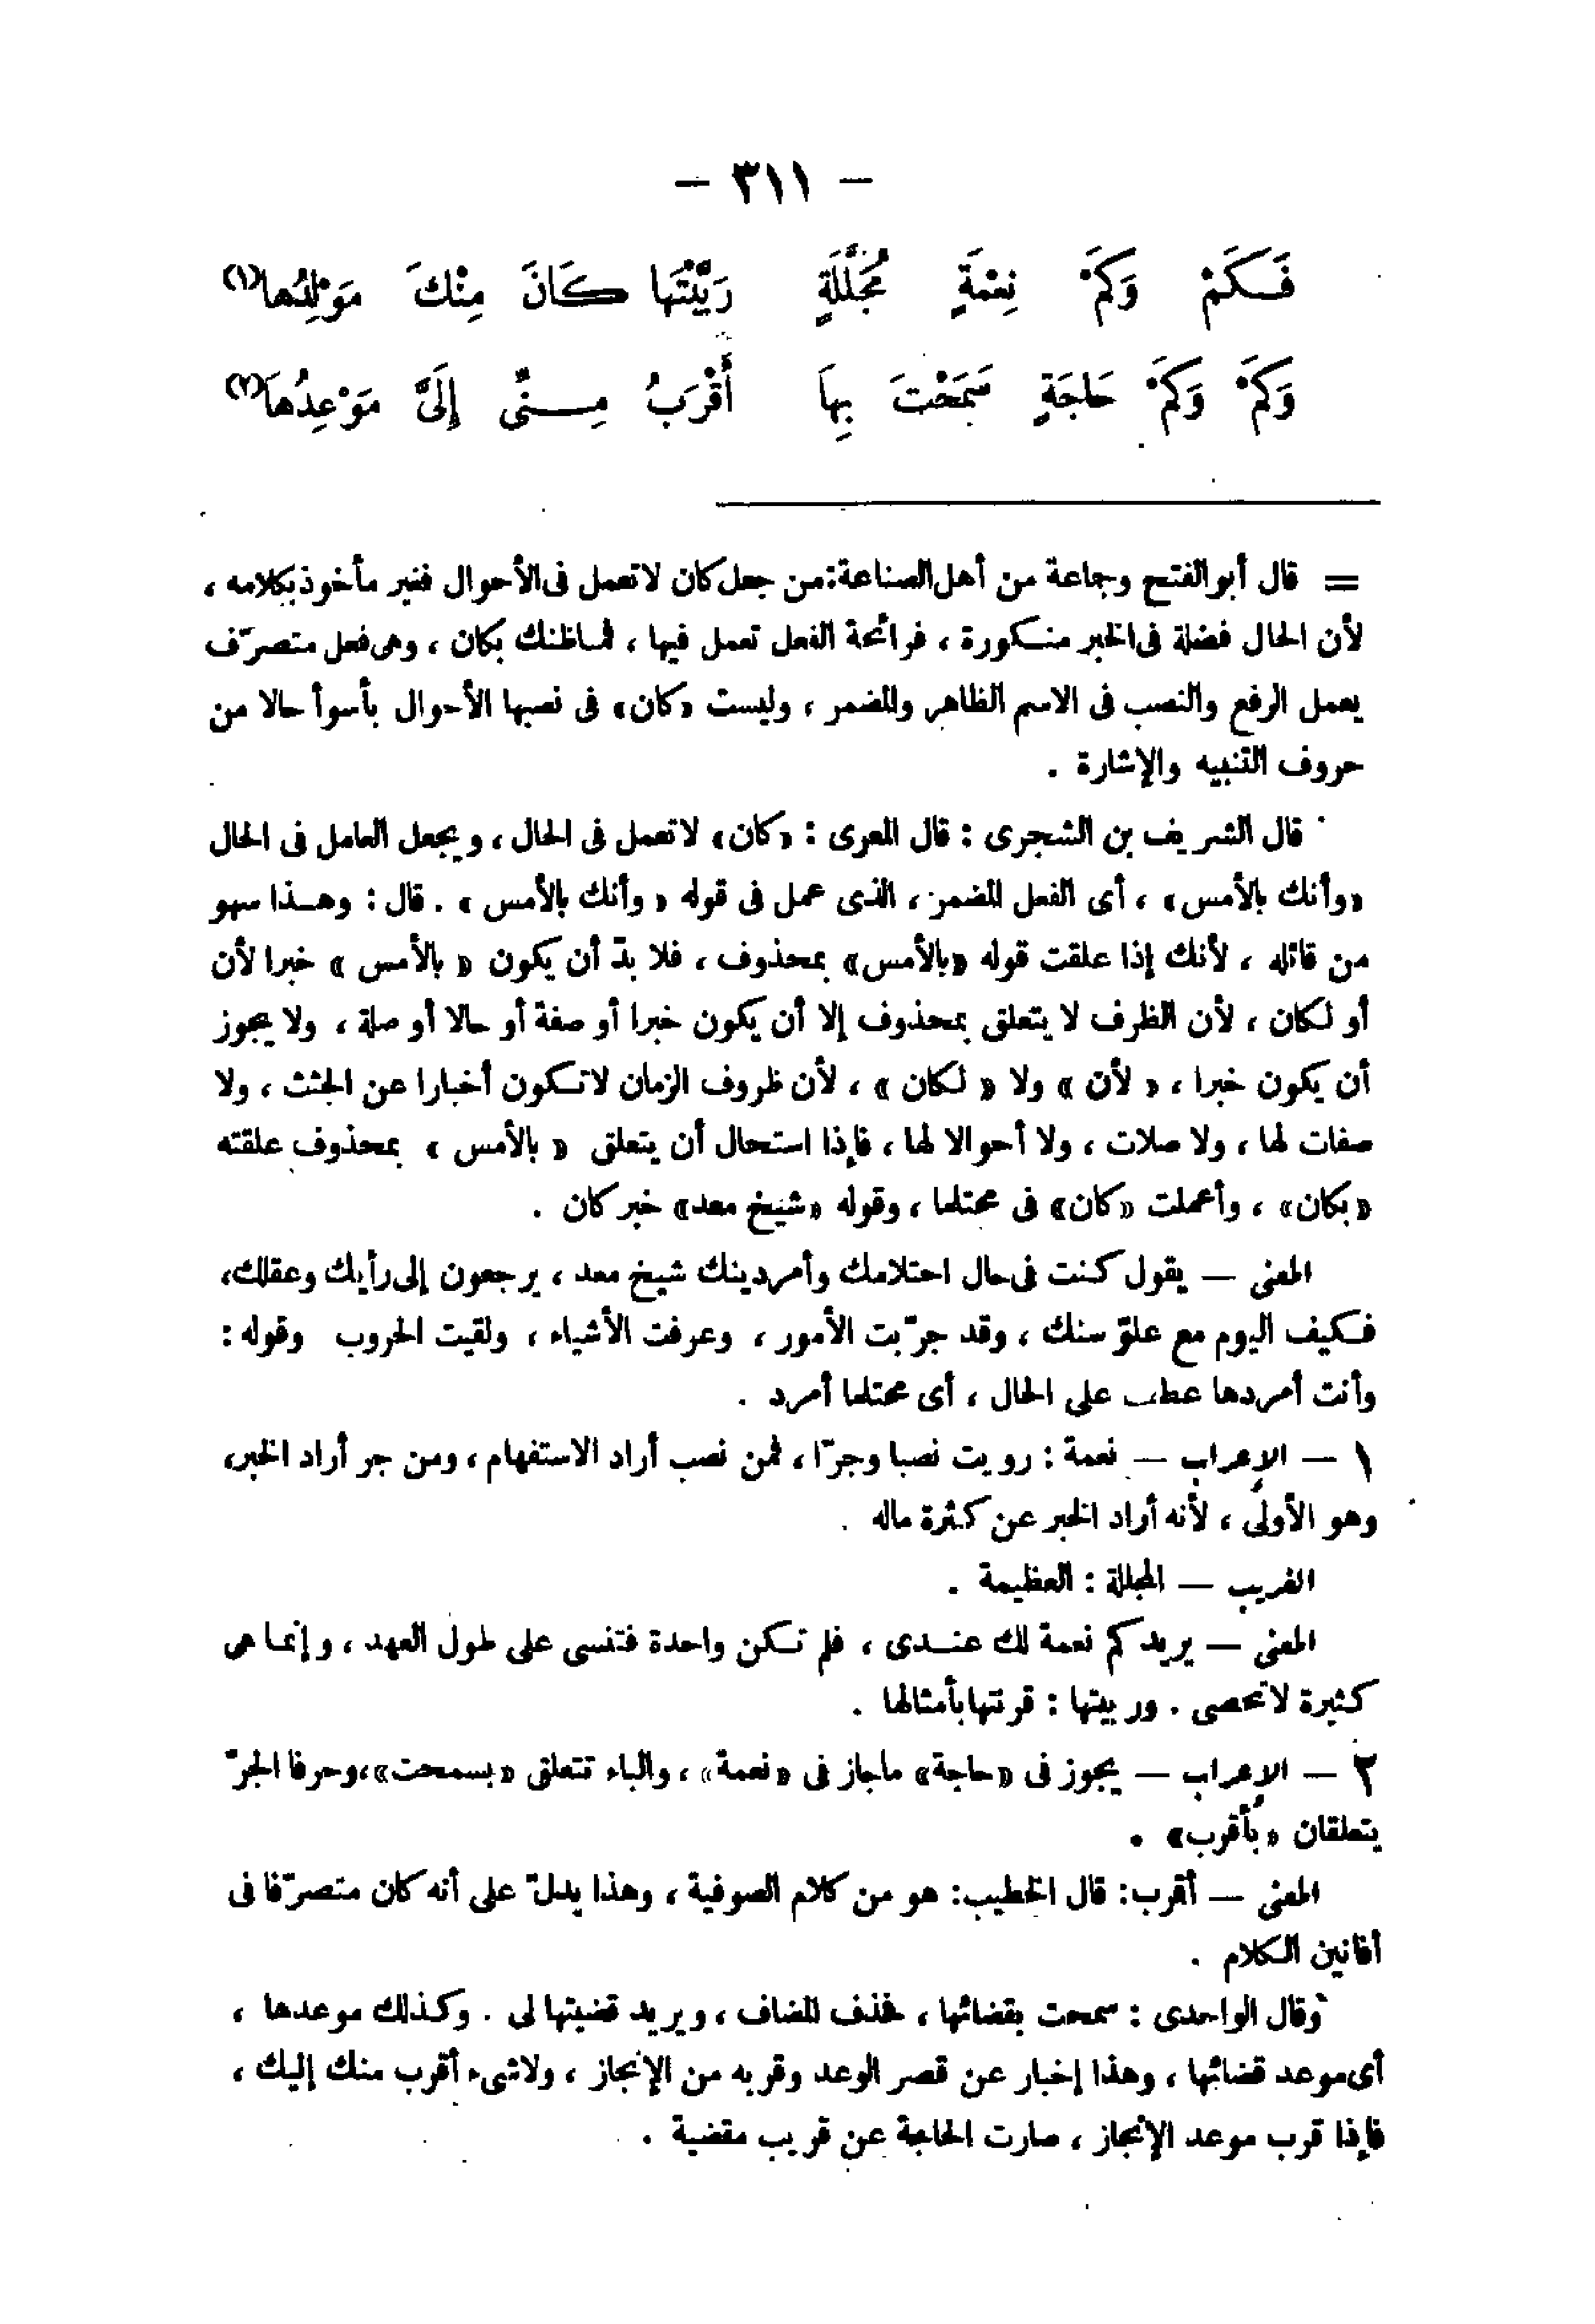 — ٣١١ —
فَكَمْ وَكَمْ نِعْمَةٍ مُجَلَّلَةٍ رَبَّيْتَهَا كَانَ مِنْكَ مَوْلِدُها(١)
وَكَمْ وَكَمْ حَاجَةٍ سَمَحْتَ بِهَا أَقْرَبُ مِنِّى إِلَىَّ مَوْعِدُهاَ(٢)
= قال أبو الفتح وجماعة من أهل الصناعة: من جعل كان لا تعمل فى الأحوال فغير مأخوذ بكلامه ،
لأن الحال فضلة فى الخبر منكورة ، فرائحة الفعل تعمل فيها ، فما ظنك بكان ، وهى فعل متصرّف
يعمل الرفع والنصب فى الاسم الظاهر والمضمر ، وليست «كان» فى نصبها الأحوال بأسوأ حالا من
حروف التنبيه والإشارة .
قال الشريف بن الشجرى : قال المعرى : «كان» لا تعمل فى الحال ، ويجعل العامل فى الحال
«وأنك بالأمس» ، أى الفعل المضمر ، الذى عمل فى قوله « وأنك بالأمس » . قال : وهذا سهو
من قائله ، لأنك إذا علقت قوله «بالأمس» بمحذوف ، فلا بدّ أن يكون « بالأمس » خبرا لأن
أو لكان ، لأن الظرف لا يتعلق بمحذوف إلا أن يكون خبرا أو صفة أو حالا أو صلة ، ولا يجوز
أن يكون خبرا ، « لأن » ولا « لكان » ، لأن ظروف الزمان لا تكون أخبارا عن الجثث ، ولا
صفات لها ، ولا صلات ، ولا أحوالا لها ، فإذا استحال أن يتعلق « بالأمس » بمحذوف علقته
«بكان» ، وأعملت «كان» فى محتلما ، وقوله «شيخ معد» خبر كان .
المعنى — يقول كنت فى حال احتلامك وأمرد ينك شيخ معد ، يرجعون إلى رأيك وعقلك،
فكيف اليوم مع علوّ سنك ، وقد جرّبت الأمور ، وعرفت الأشياء ، ولقيت الحروب وقوله :
وأنت أمردها عطف على الحال ، أى محتلما أمرد .
١ — الإعراب — نعمة : رويت نصبا وجرّا ، فمن نصب أراد الاستفهام ، ومن جر أراد الخبر،
وهو الأولى ، لأنه أراد الخبر عن كثرة ماله .
الغريب — المجللة : العظيمة .
المعنى — يريد كم نعمة لك عندى ، فلم تكن واحدة فتنسى على طول العهد ، وإنما هى
كثيرة لا تحصى . وربيتها : قرنتها بأمثالها .
٢ — الإعراب — يجوز فى «حاجة» ماجاز فى «نعمة» ، والباء تتعلق «بسمحت»،وحرفا الجرّ
يتعلقان «بأقرب» .
المعنى — أقرب: قال الخطيب: هو من كلام الصوفية ، وهذا يدلّ على أنه كان متصرّفا فى
أفانين الكلام .
وقال الواحدى : سمحت بقضائها ، فحذف المضاف ، ويريد قضيتها لى . وكذلك موعدها ،
أى موعد قضائها ، وهذا إخبار عن قصر الوعد وقربه من الإنجاز ، ولا شىء أقرب منك إليك ،
فإذا قرب موعد الإنجاز ، صارت الحاجة عن قريب مقضية .